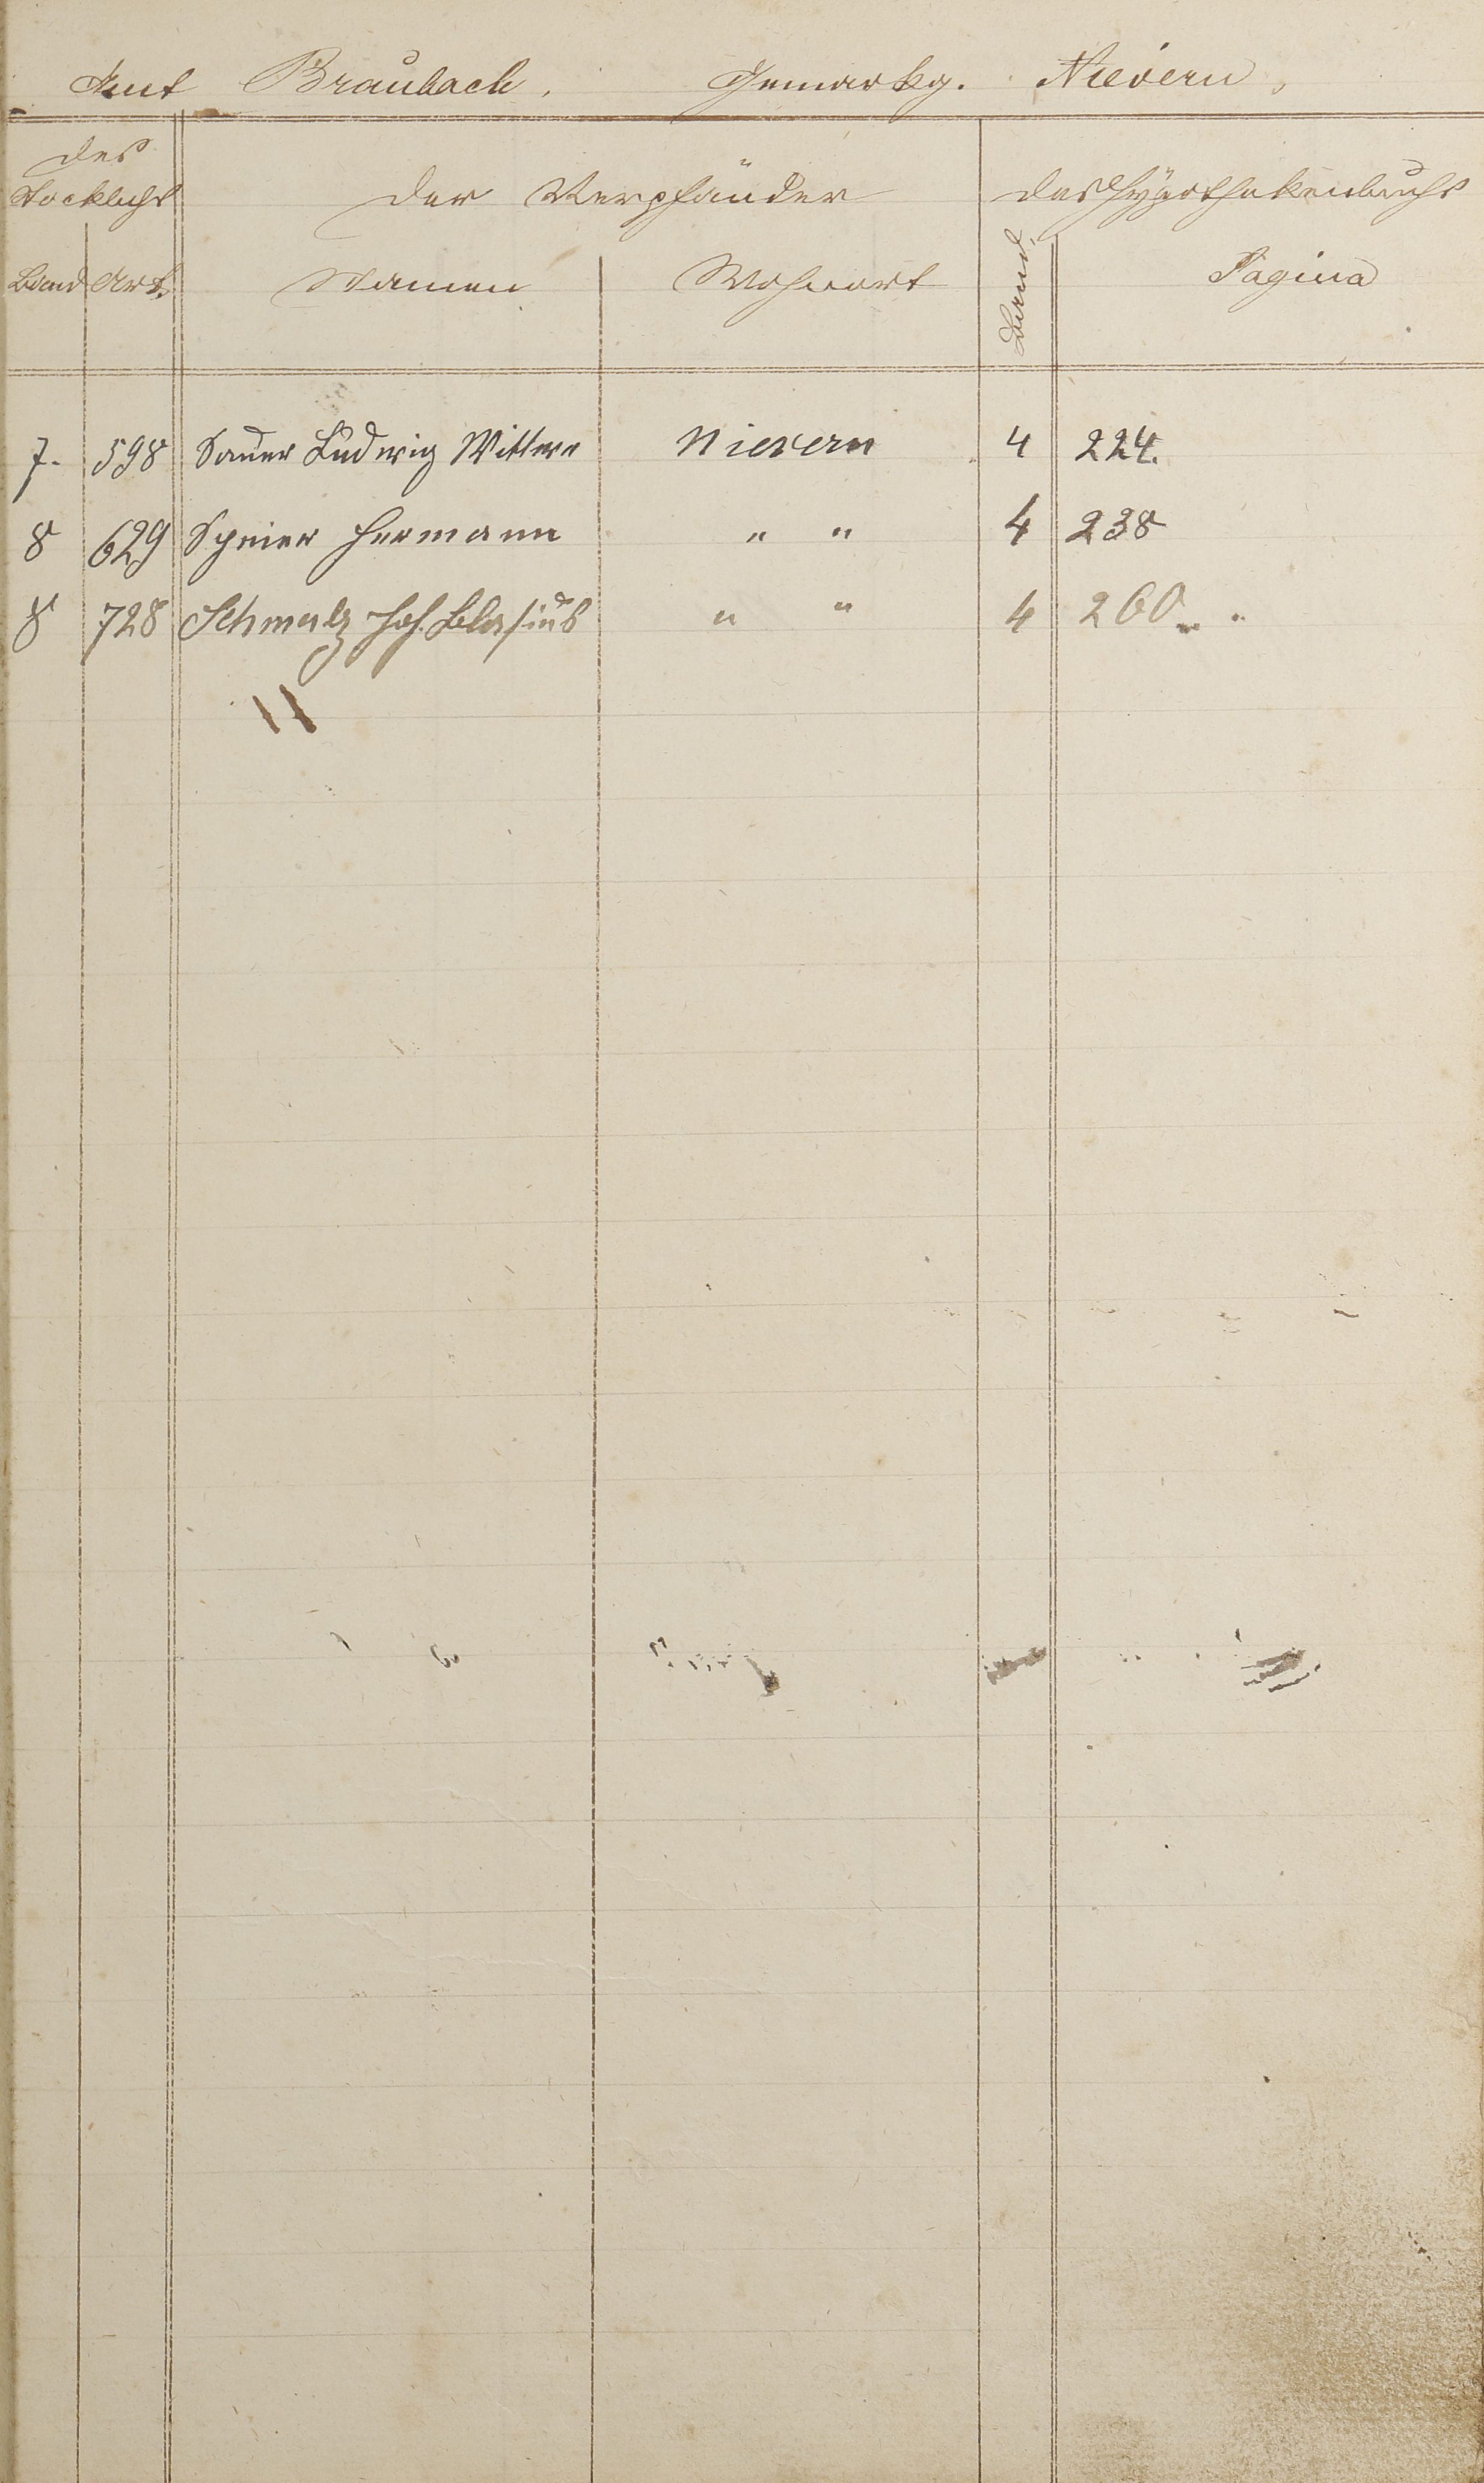 Amt Braubach. Gemarkg. Nievern.
des Stockbuchs
der Verpfänder
des Hypothekenbuchs
Band Art. Namen Wohnort Band. Pagina
7. 598 Sauer Ludwig Wittwe Nievern 4 224.
8 629 Speier Hermann " " 4 238
8 728 Schmalz Joh. Blasius " " 4 260